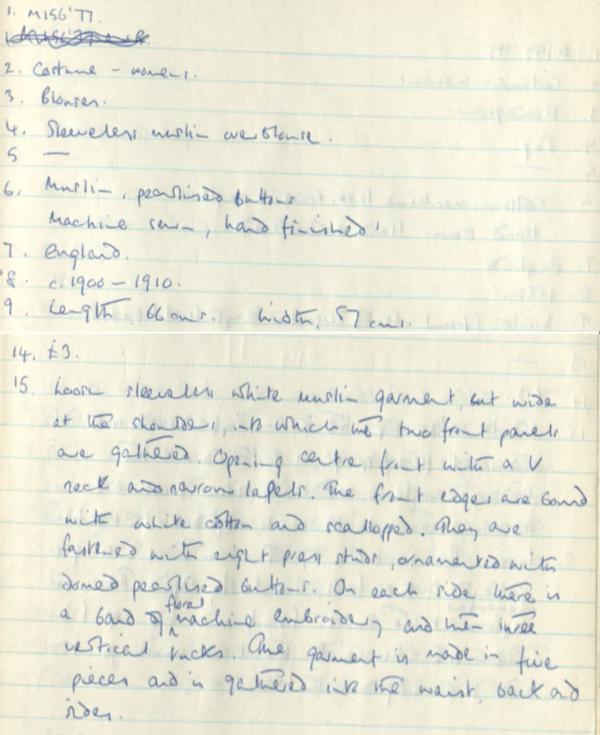 1. M156'77.
2. Costume - womens.
3. Blouses.
4. Sleeveless muslin overblouse.
5 —
6. Muslin, pearlised buttons
Machine sewn, hand finished'
7. England.
8. c.1900 - 1910.
9. Length, 66 cms. Width, 57 cms.
14. £3.
15. Loose sleeveless white muslin garment, cut wide
at the shoulders, into which the, two front panels
are gathered. Opening centre front with a V
neck and narrow lapels. The front edges are bound
with white cotton and scallopped. They are
fastened with eight press studs, ornamented with
domed pearlised buttons. On each side there is
a band of floral machine embroidery and then three
vertical tucks. The garment is made in five
pieces and is gathered into the waist, back and
sides.